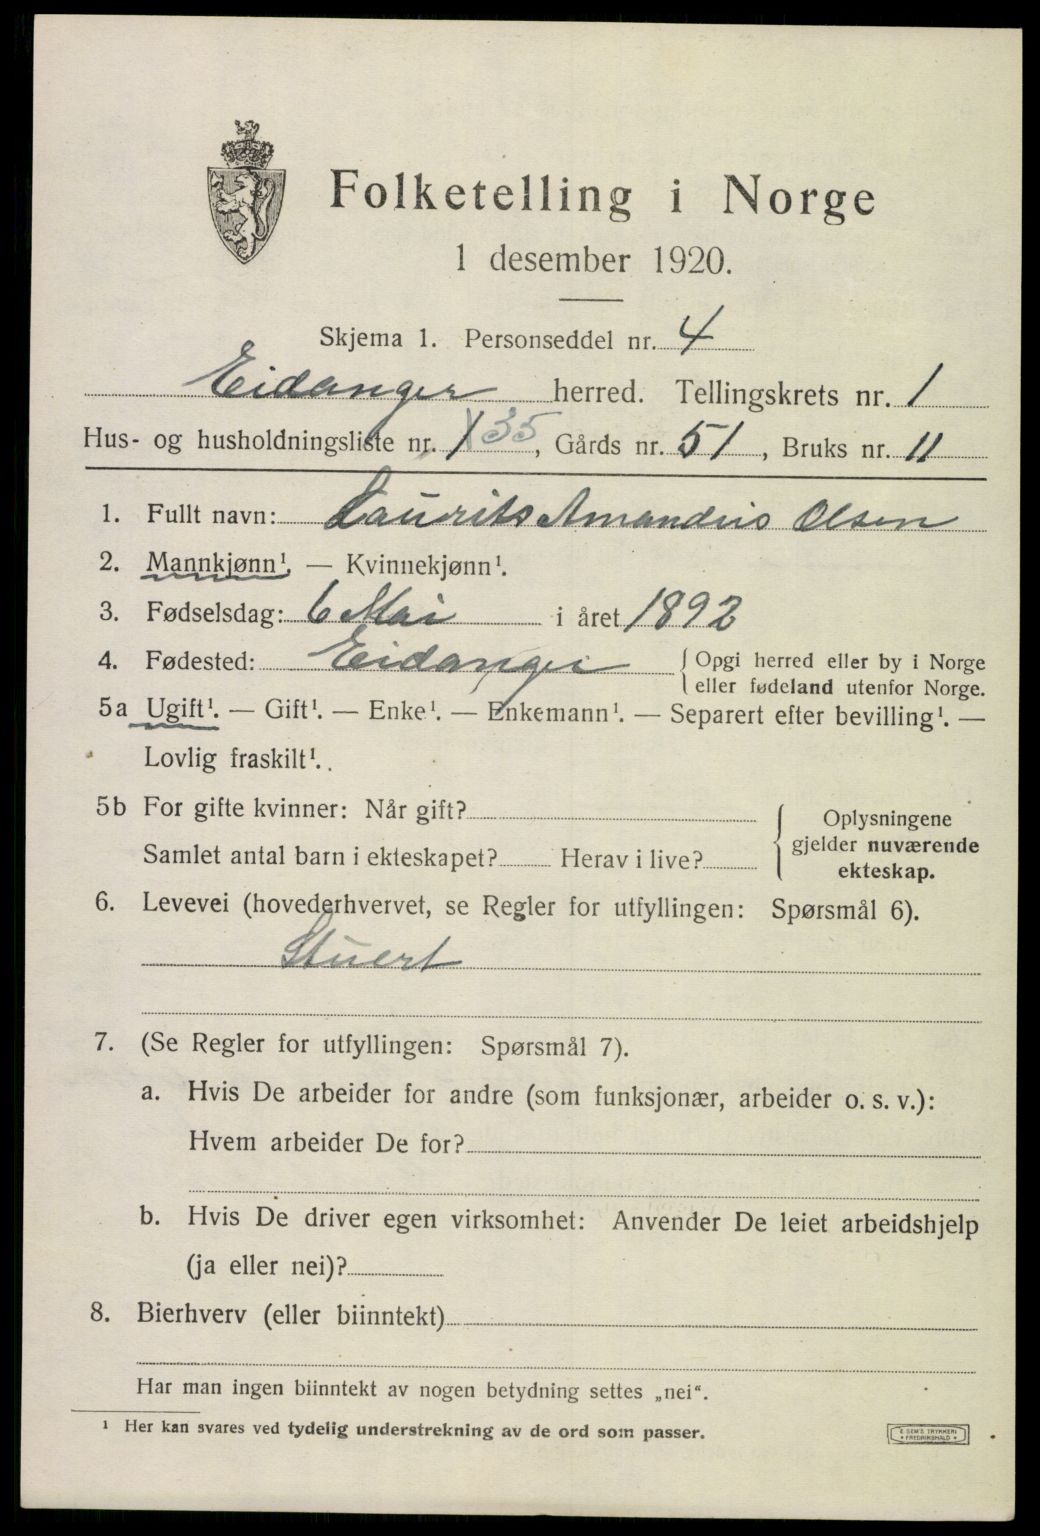 Folketelling i Norge
1 desember 1920.
Skjema 1. Personseddel nr. 4
Eidanger herred. Tellingskrets nr. 1
Hus- og husholdningsliste nr. 135, Gårds nr. 51, Bruks nr. 11
1. Fullt navn: Laurits Amandus Olsen
2. Mannkjønn¹. — Kvinnekjønn¹.
3. Fødselsdag: 6 Mai i året 1892
4. Fødested: Eidanger {Opgi herred eller by i Norge
eller fødeland utenfor Norge.
5a Ugift¹. — Gift¹. — Enke¹. — Enkemann¹. — Separert efter bevilling¹. —
Lovlig fraskilt¹.
5b For gifte kvinner: Når gift?
Samlet antal barn i ekteskapet? Herav i live?
{ Oplysningene
gjelder nuværende
ekteskap.
6. Levevei (hovederhvervet, se Regler for utfyllingen: Spørsmål 6).
Stuert
7. (Se Regler for utfyllingen: Spørsmål 7).
a. Hvis De arbeider for andre (som funksjonær, arbeider o. s. v.):
Hvem arbeider De for?
b. Hvis De driver egen virksomhet: Anvender De leiet arbeidshjelp
(ja eller nei)?
8. Bierhverv (eller biinntekt)
Har man ingen biinntekt av nogen betydning settes „nei“.
¹ Her kan svares ved tydelig understrekning av de ord som passer.
E SEM'S TRYKKERI
FREDRIKSHALD